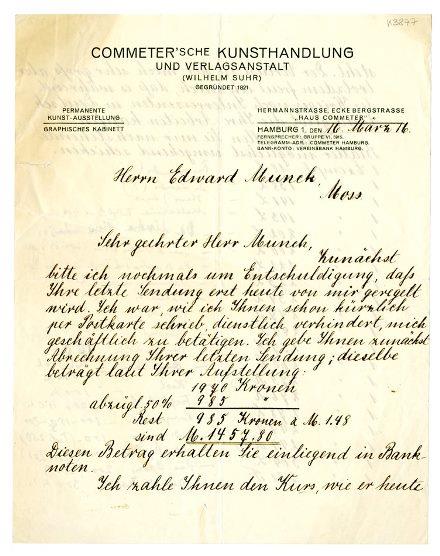 K3277
COMMETER'SCHE KUNSTHANDLUNG
UND VERLAGSANSTALT
(WILHELM SUHR)
GEGRÜNDET 1821.
PERMANENTE
KUNST-AUSSTELLUNG
GRAPHISCHES KABINETT
HERMANNSTRASSE, ECKE BERGSTRASSE
„HAUS COMMETER"
HAMBURG 1, DEN 16. März 16.
FERNSPRECHER: GRUPPE VI, 595.
TELEGRAMM-ADR.: COMMETER HAMBURG.
BANK-KONTO: VEREINSBANK HAMBURG.
Herrn Edward Munch
Moss
Sehr geehrter Herr Munch,
Zunächst
bitte ich nochmals um Entschuldigung, daß
Ihre letzte Sendung erst heute von mir geregelt
wird. Ich war, wie ich Ihnen schon kürzlich
per Postkarte schrieb, dienstlich verhindert, mich
geschäftlich zu betätigen. Ich gebe Ihnen zunächst
Abrechnung Ihrer letzten Sendung; dieselbe
beträgt laut Ihrer Aufstellung:
1970 Kronen
abzügl 50% 985 "
Rest 985 Kronen à M. 1.48
sind M. 1457.80
Diesen Betrag erhalten Sie einliegend in Bank-
noten.
Ich zahle Ihnen den Kurs, wie er heute